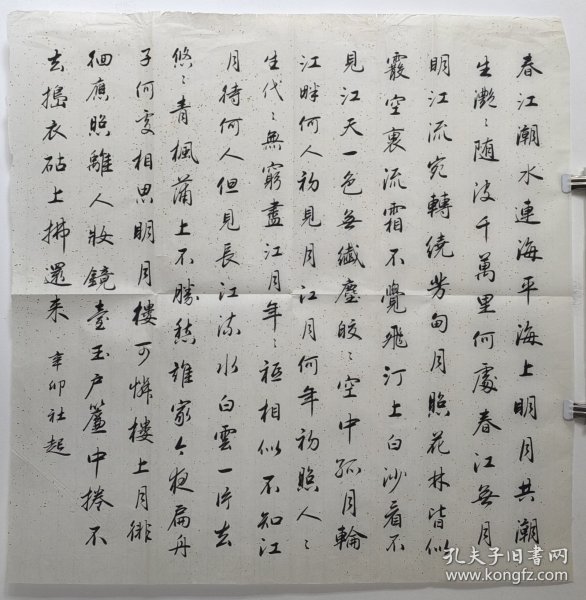 春江潮水連海平海上明月共潮
生灧〻随波千萬里何處春江無月
明江流宛轉繞芳甸月照花林皆似
霰空裏流霜不覺飛汀上白沙看不
見江天一色無纖塵皎〻空中孤月輪
江畔何人初見月江月何年初照人〻
生代〻無窮盡江月年〻祗相似不知江
月待何人但見長江流水白雲一片去
悠〻青楓蒲上不勝愁誰家今夜扁舟
子何處相思明月樓可憐樓上月徘
徊應照離人妝鏡臺玉戶簾中捲不
去搗衣砧上拂還来 辛卯社起
孔夫子旧书网
kongfz.com